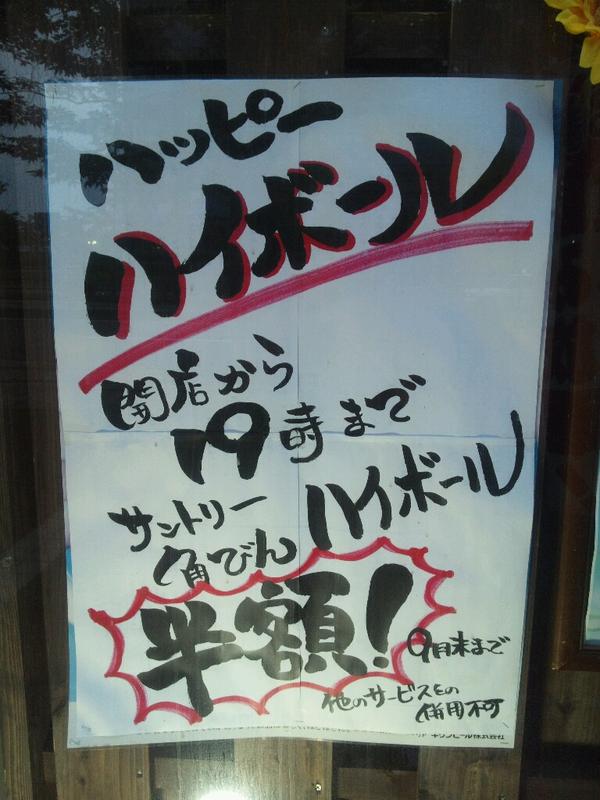 ハッピー
ハイボール
開店から
19時まで
サントリー
角びん
ハイボール
半額!
9月末まで
他のサービスとの
併用不可
キリンビール株式会社